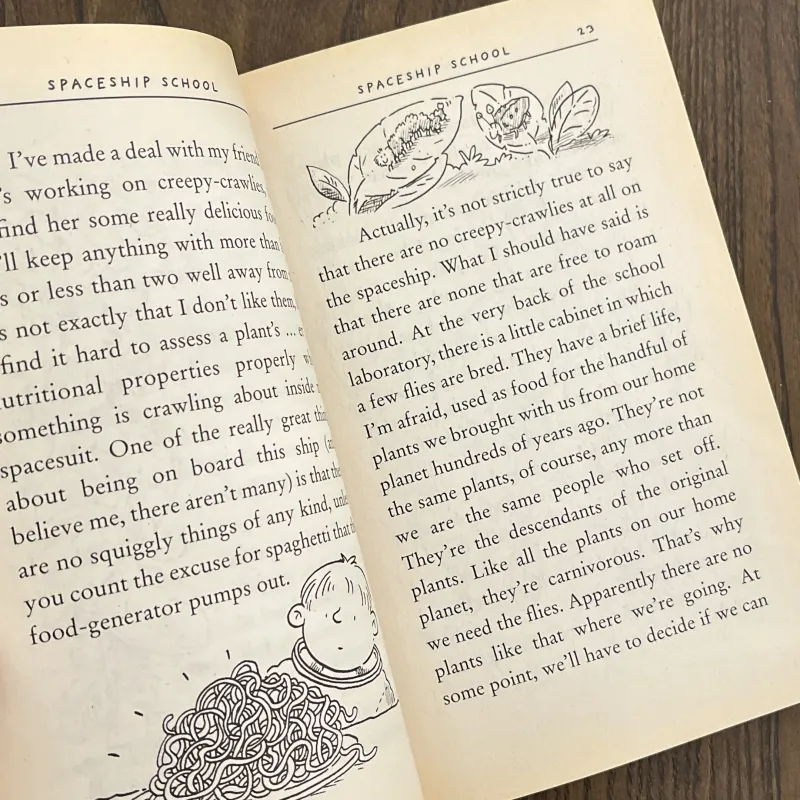 SPACESHIP SCHOOL
I've made a deal with my friend
's working on creepy-crawlies,
find her some really delicious
'll keep anything with more than
s or less than two well away from
s not exactly that I don't like them,
find it hard to assess a plant's ...
nutritional properties properly
something is crawling about inside
spacesuit. One of the really great
about being on board this ship
believe me, there aren't many) is that
are no squiggly things of any kind,
you count the excuse for spaghetti that
food-generator pumps out.
SPACESHIP SCHOOL
23
Actually, it's not strictly true to say
that there are no creepy-crawlies at all on
the spaceship. What I should have said is
that there are none that are free to roam
around. At the very back of the school
laboratory, there is a little cabinet in which
a few flies are bred. They have a brief life,
I'm afraid, used as food for the handful of
plants we brought with us from our home
planet hundreds of years ago. They're not
the same plants, of course, any more than
we are the same people who set off.
They're the descendants of the original
plants. Like all the plants on our home
planet, they're carnivorous. That's why
we need the flies. Apparently there are no
plants like that where we're going. At
some point, we'll have to decide if we can